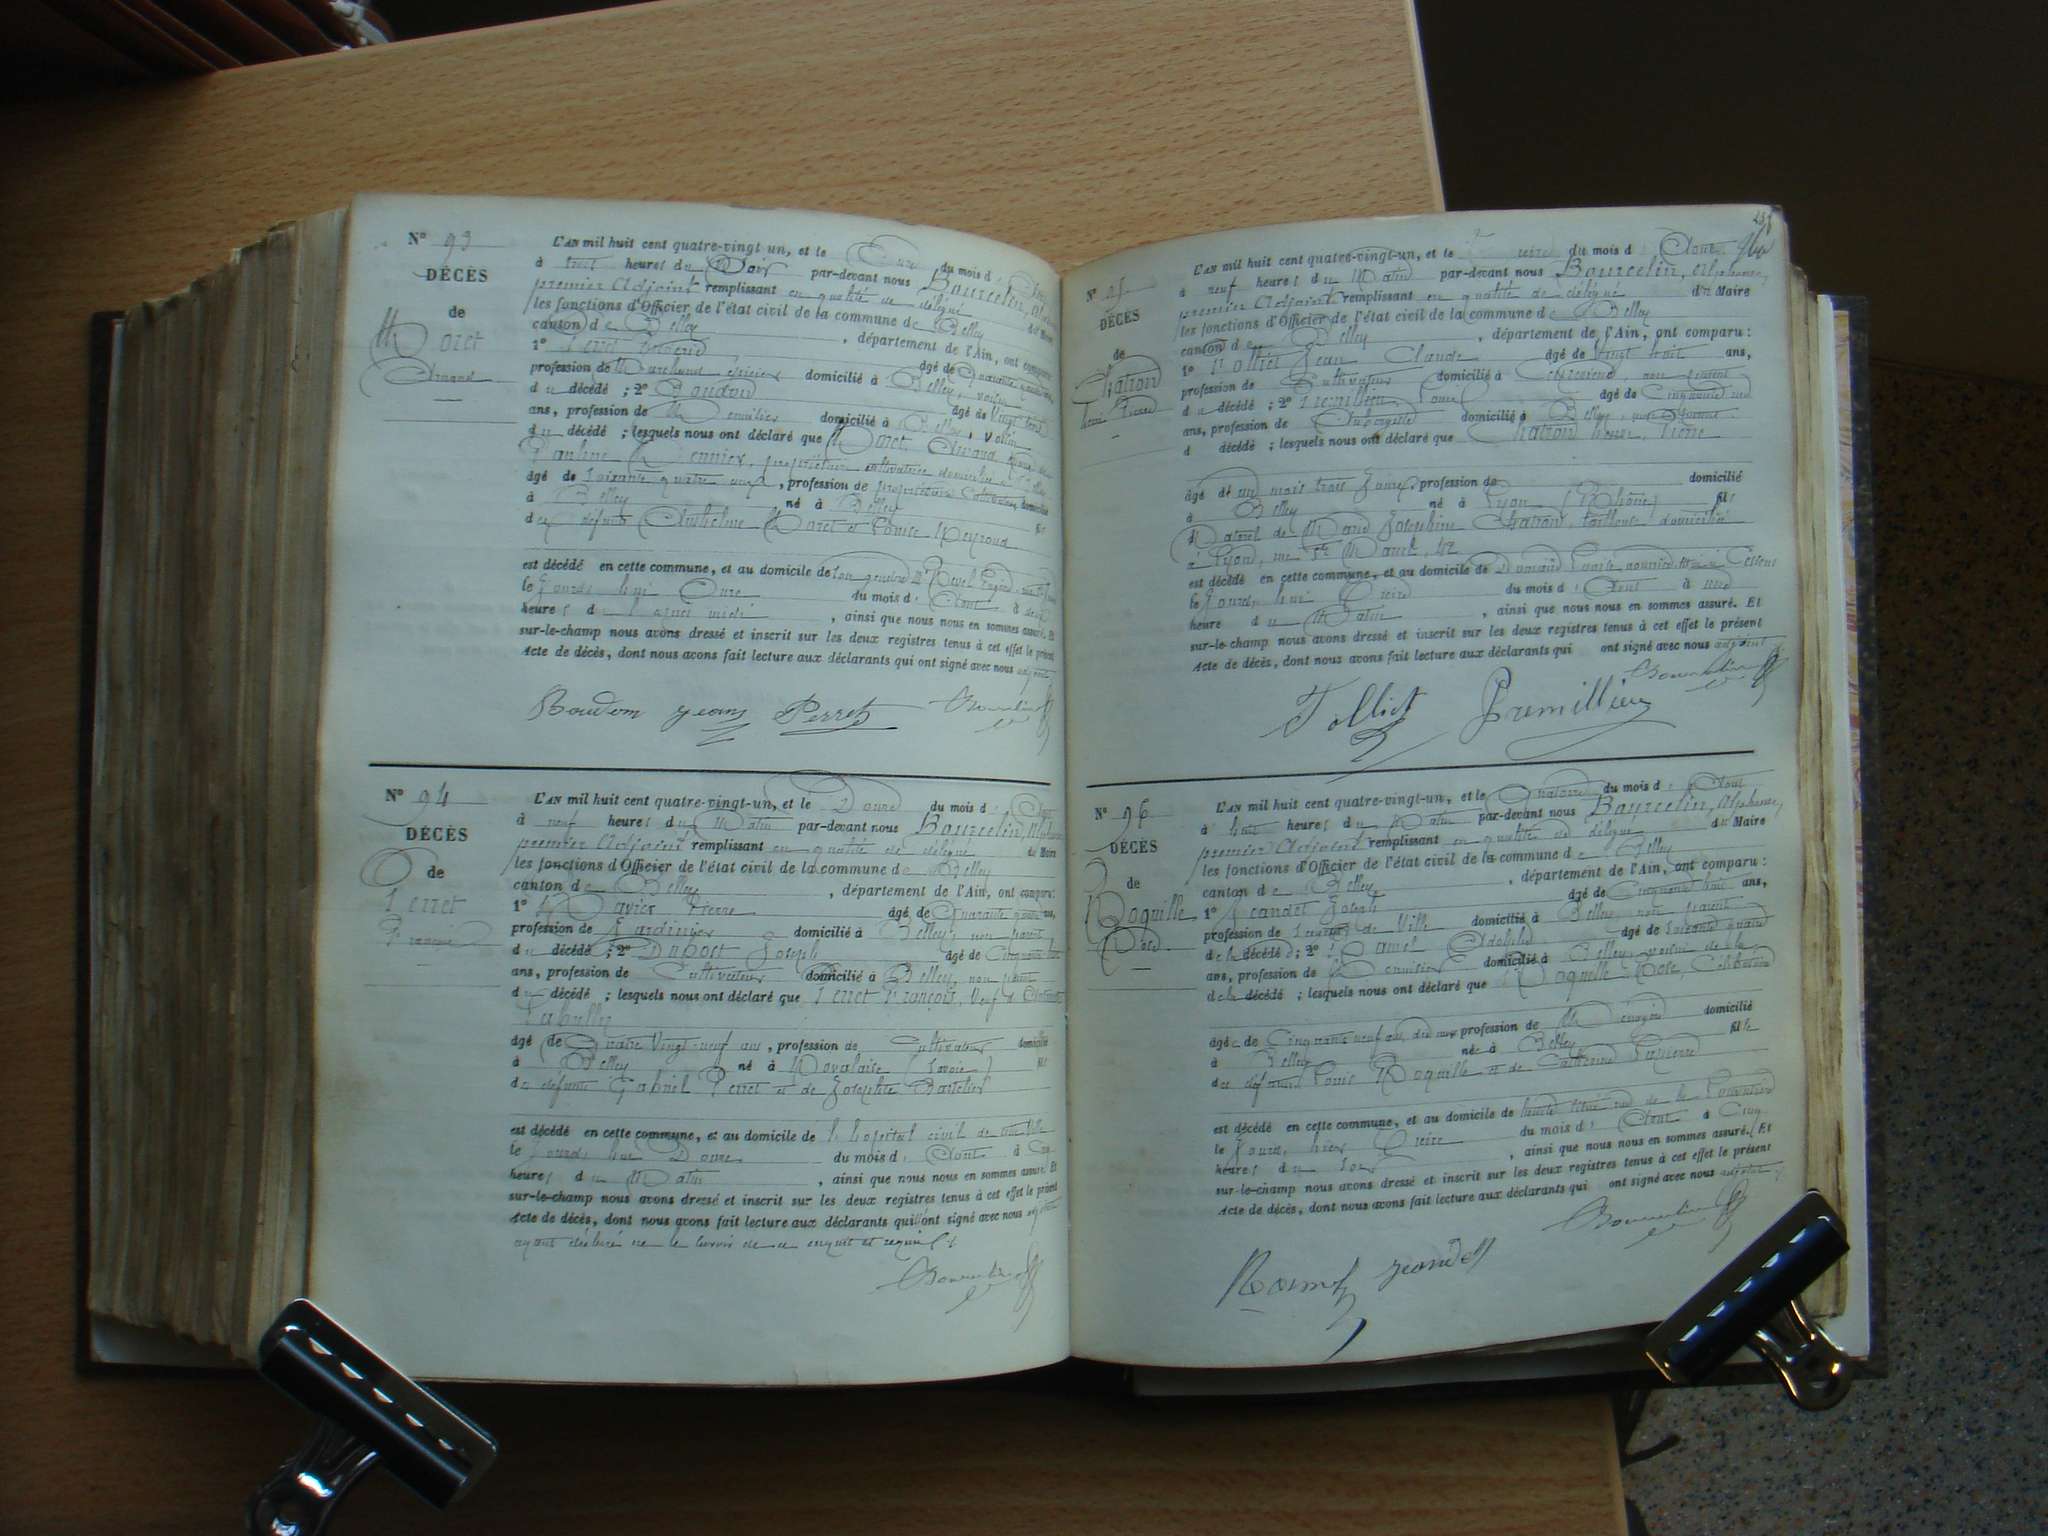 N° 93
DÉCÈS
de
Moret
L'AN mil huit cent quatre-vingt un, et le Onze du mois d'
à heures du Soir par-devant nous Bourcelin,
premier Adjoint remplissant en qualité de délégué
les fonctions d'Officier de l'état civil de la commune de Belley
canton de Belley, département de l'Ain, ont comparu:
1° Perret âgé de Quarante
profession de Marchand épicier domicilié à Belley, voisin
du décédé; 2° Boudon âgé de Vingt
ans, profession de Menuisier domicilié à Belley, voisin
du décédé; lesquels nous ont déclaré que Moret,
Pauline propriétaire cultivatrice domiciliée à
âgé de Soixante quatre ans, profession de propriétaire cultivateur, domicilié
à Belley né à Belley fils
des défunts Anthelme Moret et Louise Peyroud
est décédé en cette commune, et au domicile de son gendre Mr Revel
le Jourd'hui Onze du mois d'Août à deux
heures de l'après midi, ainsi que nous nous en sommes assuré. Et
sur-le-champ nous avons dressé et inscrit sur les deux registres tenus à cet effet le présent
Acte de décès, dont nous avons fait lecture aux déclarants qui ont signé avec nous adjoint
Boudon jean Perret Bourcelin
N° 94
DÉCÈS
de
Perret
François
L'AN mil huit cent quatre-vingt-un, et le Douze du mois d'Août
à neuf heures du Matin par-devant nous Bourcelin, Alphonse
premier Adjoint remplissant en qualité de délégué du Maire
les fonctions d'Officier de l'état civil de la commune de Belley
canton de Belley, département de l'Ain, ont comparu:
1° Pierre âgé de Quarante ans,
profession de Jardinier domicilié à Belley, non parent
du décédé; 2° Duport Joseph âgé de Cinquante
ans, profession de Cultivateur domicilié à Belley, non parent
du décédé; lesquels nous ont déclaré que Perret François, Veuf
âgé de Quatre Vingt neuf ans, profession de Cultivateur domicilié
à Belley né à Novalaise (Savoie) fils
des défunts Gabriel Perret et de Josephte Bartelier
est décédé en cette commune, et au domicile de l'hôpital civil de cette Ville
le Jourd'hui Douze du mois d'Août à
heures du Matin, ainsi que nous nous en sommes assuré. Et
sur-le-champ nous avons dressé et inscrit sur les deux registres tenus à cet effet le présent
Acte de décès, dont nous avons fait lecture aux déclarants qui n'ont signé avec nous adjoint
ayant déclaré ne le savoir de ce enquis et requis
Bourcelin
N° 95
DÉCÈS
de
Chatron
henri Pierre
L'AN mil huit cent quatre-vingt-un, et le Treize du mois d'Août
à neuf heures du Matin par-devant nous Bourcelin, Alphonse,
premier Adjoint remplissant en qualité de délégué du Maire
les fonctions d'Officier de l'état civil de la commune de Belley
canton de Belley, département de l'Ain, ont comparu:
1° Tolliet Jean Claude âgé de Vingt huit ans,
profession de Cultivateur domicilié à non parent
du décédé; 2° Premillieu âgé de Cinquante
ans, profession de Aubergiste domicilié à Belley, non parent
d décédé; lesquels nous ont déclaré que Chatron henri, Pierre
âgé de un mois trois jours, profession de domicilié
à Belley né à Lyon (Rhône) fils
Naturel de Marie Joséphine Chatron, tailleuse domiciliée
à Lyon, rue
est décédé en cette commune, et au domicile de
le Jourd'hui Treize du mois d'Août à une
heure du Matin, ainsi que nous nous en sommes assuré. Et
sur-le-champ nous avons dressé et inscrit sur les deux registres tenus à cet effet le présent
Acte de décès, dont nous avons fait lecture aux déclarants qui ont signé avec nous adjoint
Tolliet Premillieu Bourcelin
N° 96
DÉCÈS
de
Roquille
Rose
L'AN mil huit cent quatre-vingt-un, et le Quatorze du mois d'Août
à huit heures du Matin par-devant nous Bourcelin, Alphonse,
premier Adjoint remplissant en qualité de délégué du Maire
les fonctions d'Officier de l'état civil de la commune de Belley
canton de Belley, département de l'Ain, ont comparu:
1° Jeandet Joseph âgé de Cinquante huit ans,
profession de Sergent de Ville domicilié à Belley, non parent
de la décédée; 2° Ramel Adolphe âgé de Soixante quatre
ans, profession de Menuisier domicilié à Belley, voisin de la
de la décédé; lesquels nous ont déclaré que Roquille Rose, Célibataire
âgée de Cinquante neuf ans, profession de Ménagère domicilié
à Belley née à Belley fille
des défunts Louis Roquille et de Catherine
est décédé en cette commune, et au domicile de
le Jour d'hier Treize du mois d'Août à Cinq
heures du Soir, ainsi que nous nous en sommes assuré. Et
sur-le-champ nous avons dressé et inscrit sur les deux registres tenus à cet effet le présent
Acte de décès, dont nous avons fait lecture aux déclarants qui ont signé avec nous adjoint
Ramel jeandet Bourcelin